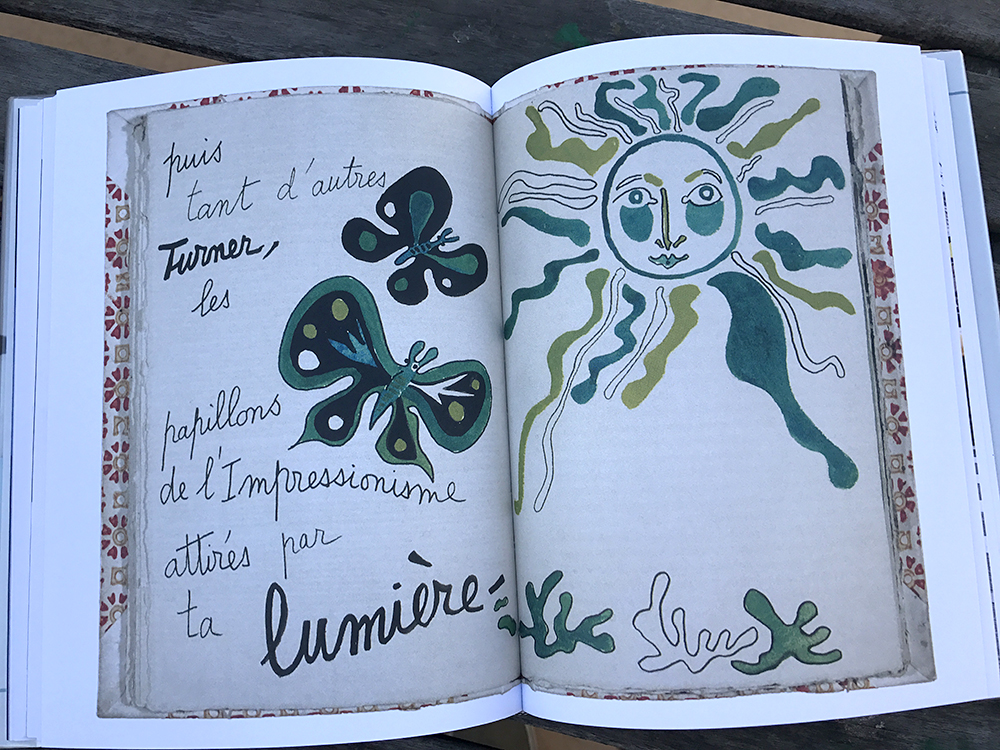 puis
tant d'autres
Turner,
les
papillons
de l'Impressionisme
attirés par
ta lumière,